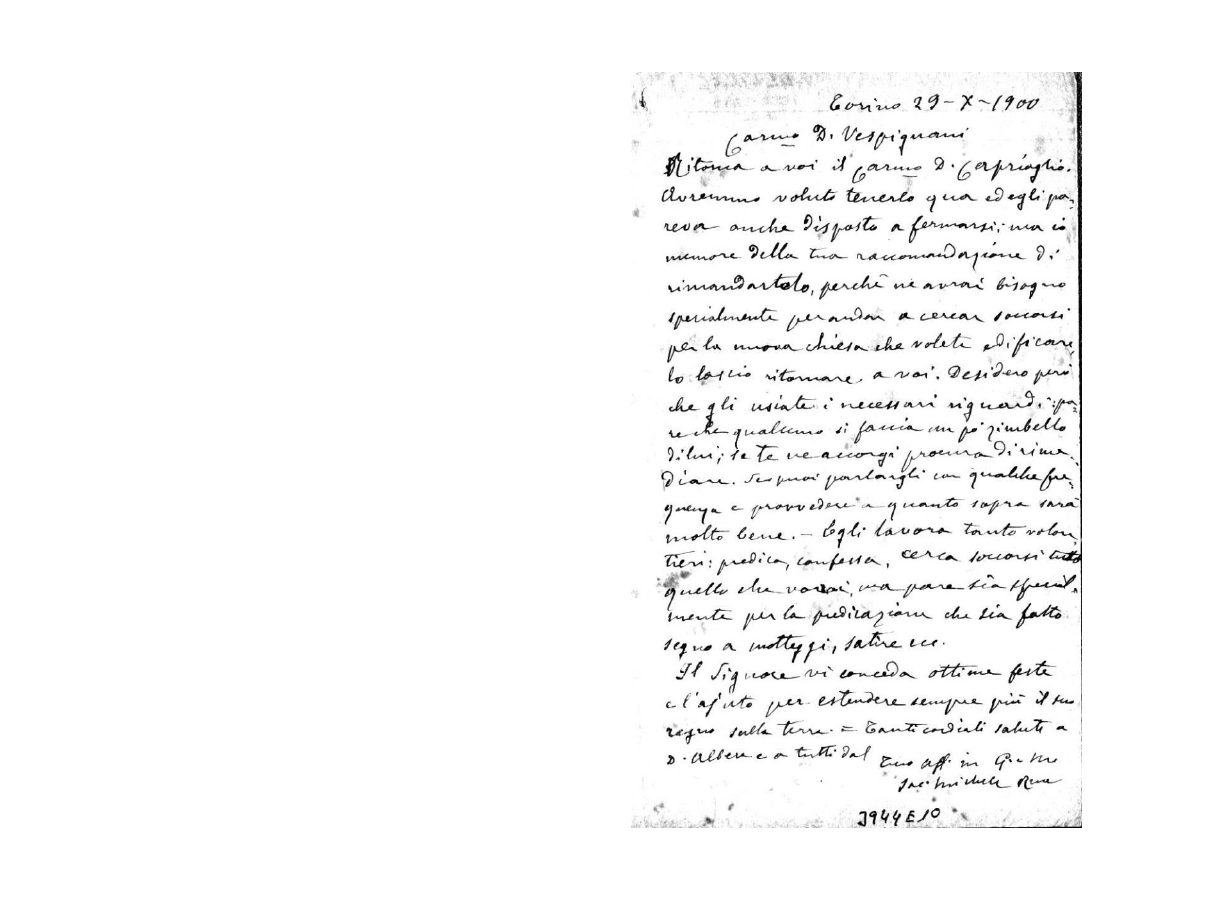 Torino 29-X-1900
Carmo D. Vespignani
Ritorna a voi il Carmo D. Caprioglio.
Avremmo voluto tenerlo qua ed egli pa-
reva anche disposto a fermarsi; ma io
memore della tua raccomandazione di
rimandartelo, perchè ne avrai bisogno
specialmente per andar a cercar soccorsi
per la nuova chiesa che volete edificare,
lo lascio ritornare a voi. Desidero però
che gli usiate i necessari riguardi: pa-
re che qualcuno si faccia un pò zimbello
di lui; se te ne accorgi procura di rime-
diare. Se puoi parlargli con qualche fre-
quenza e provvedere a quanto sopra sarà
molto bene. – Egli lavora tanto volon-
tieri: predica, confessa, cerca soccorsi tutto
quello che vorrai, ma pare sia special-
mente per la predicazione che sia fatto
segno a motteggi, satire ecc.
Il Signore vi conceda ottime feste
e l'ajuto per estendere sempre più il suo
regno sulla terra. = Tanti cordiali saluti a
D. Albera e a tutti dal Tuo aff. in G. e M.
Sac. Michele Rua
3944E10